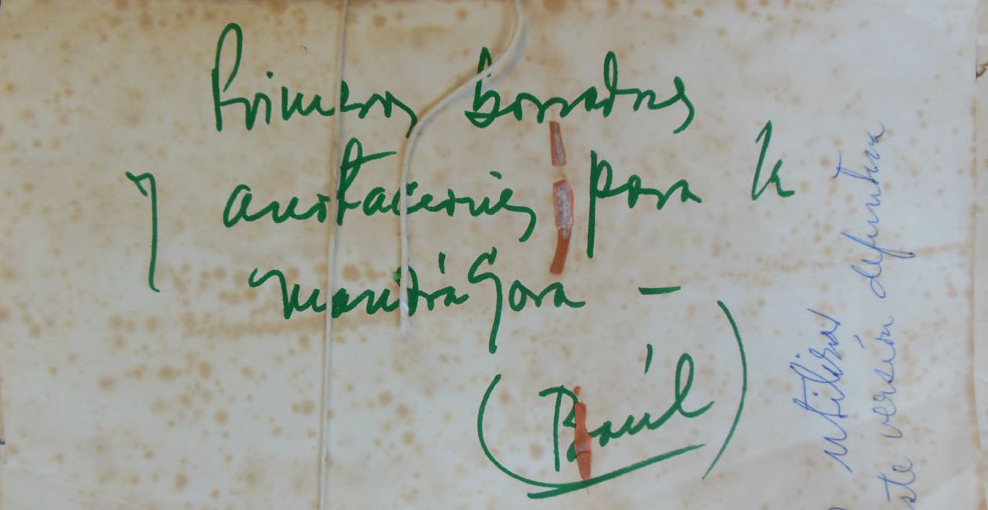 Primeros borradores
y anotaciones para la
mandrágora –
(Baúl)
utilizar
este versión definitiva